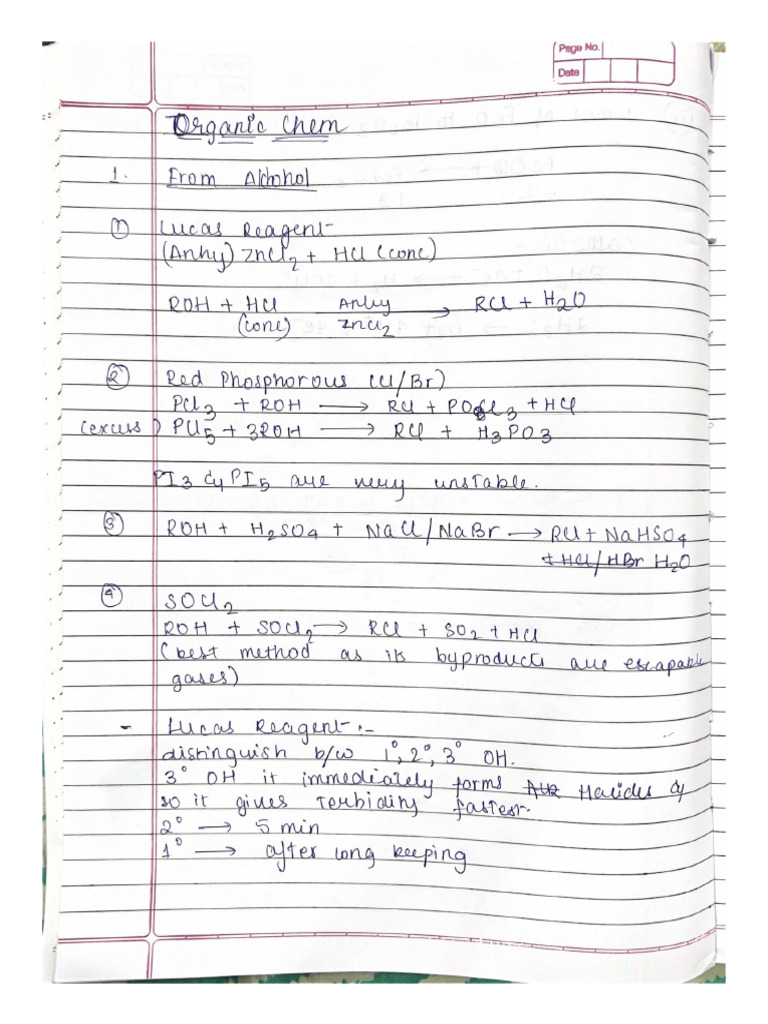 Page No.
Date
Organic Chem
1. From Alcohol
① Lucas Reagent-
(Anhy) ZnCl2 + HCl (conc)
ROH + HCl (conc) Anhy ZnCl2 → RCl + H2O
② Red Phosphorous (Cl/Br)
PCl3 + ROH → RCl + POCl3 + HCl
(excess) PCl5 + 3ROH → RCl + H3PO3
PI3 & PI5 are very unstable.
③ ROH + H2SO4 + NaCl/NaBr → RCl + NaHSO4
+ HCl/HBr H2O
④ SOCl2
ROH + SOCl2 → RCl + SO2 + HCl
(best method as its byproducts are escapable
gases)
- Lucas Reagent :-
distinguish b/w 1°, 2°, 3° OH.
3° OH it immediately forms Halides &
so it gives Terbidity fastest.
2° → 5 min
1° → after long keeping